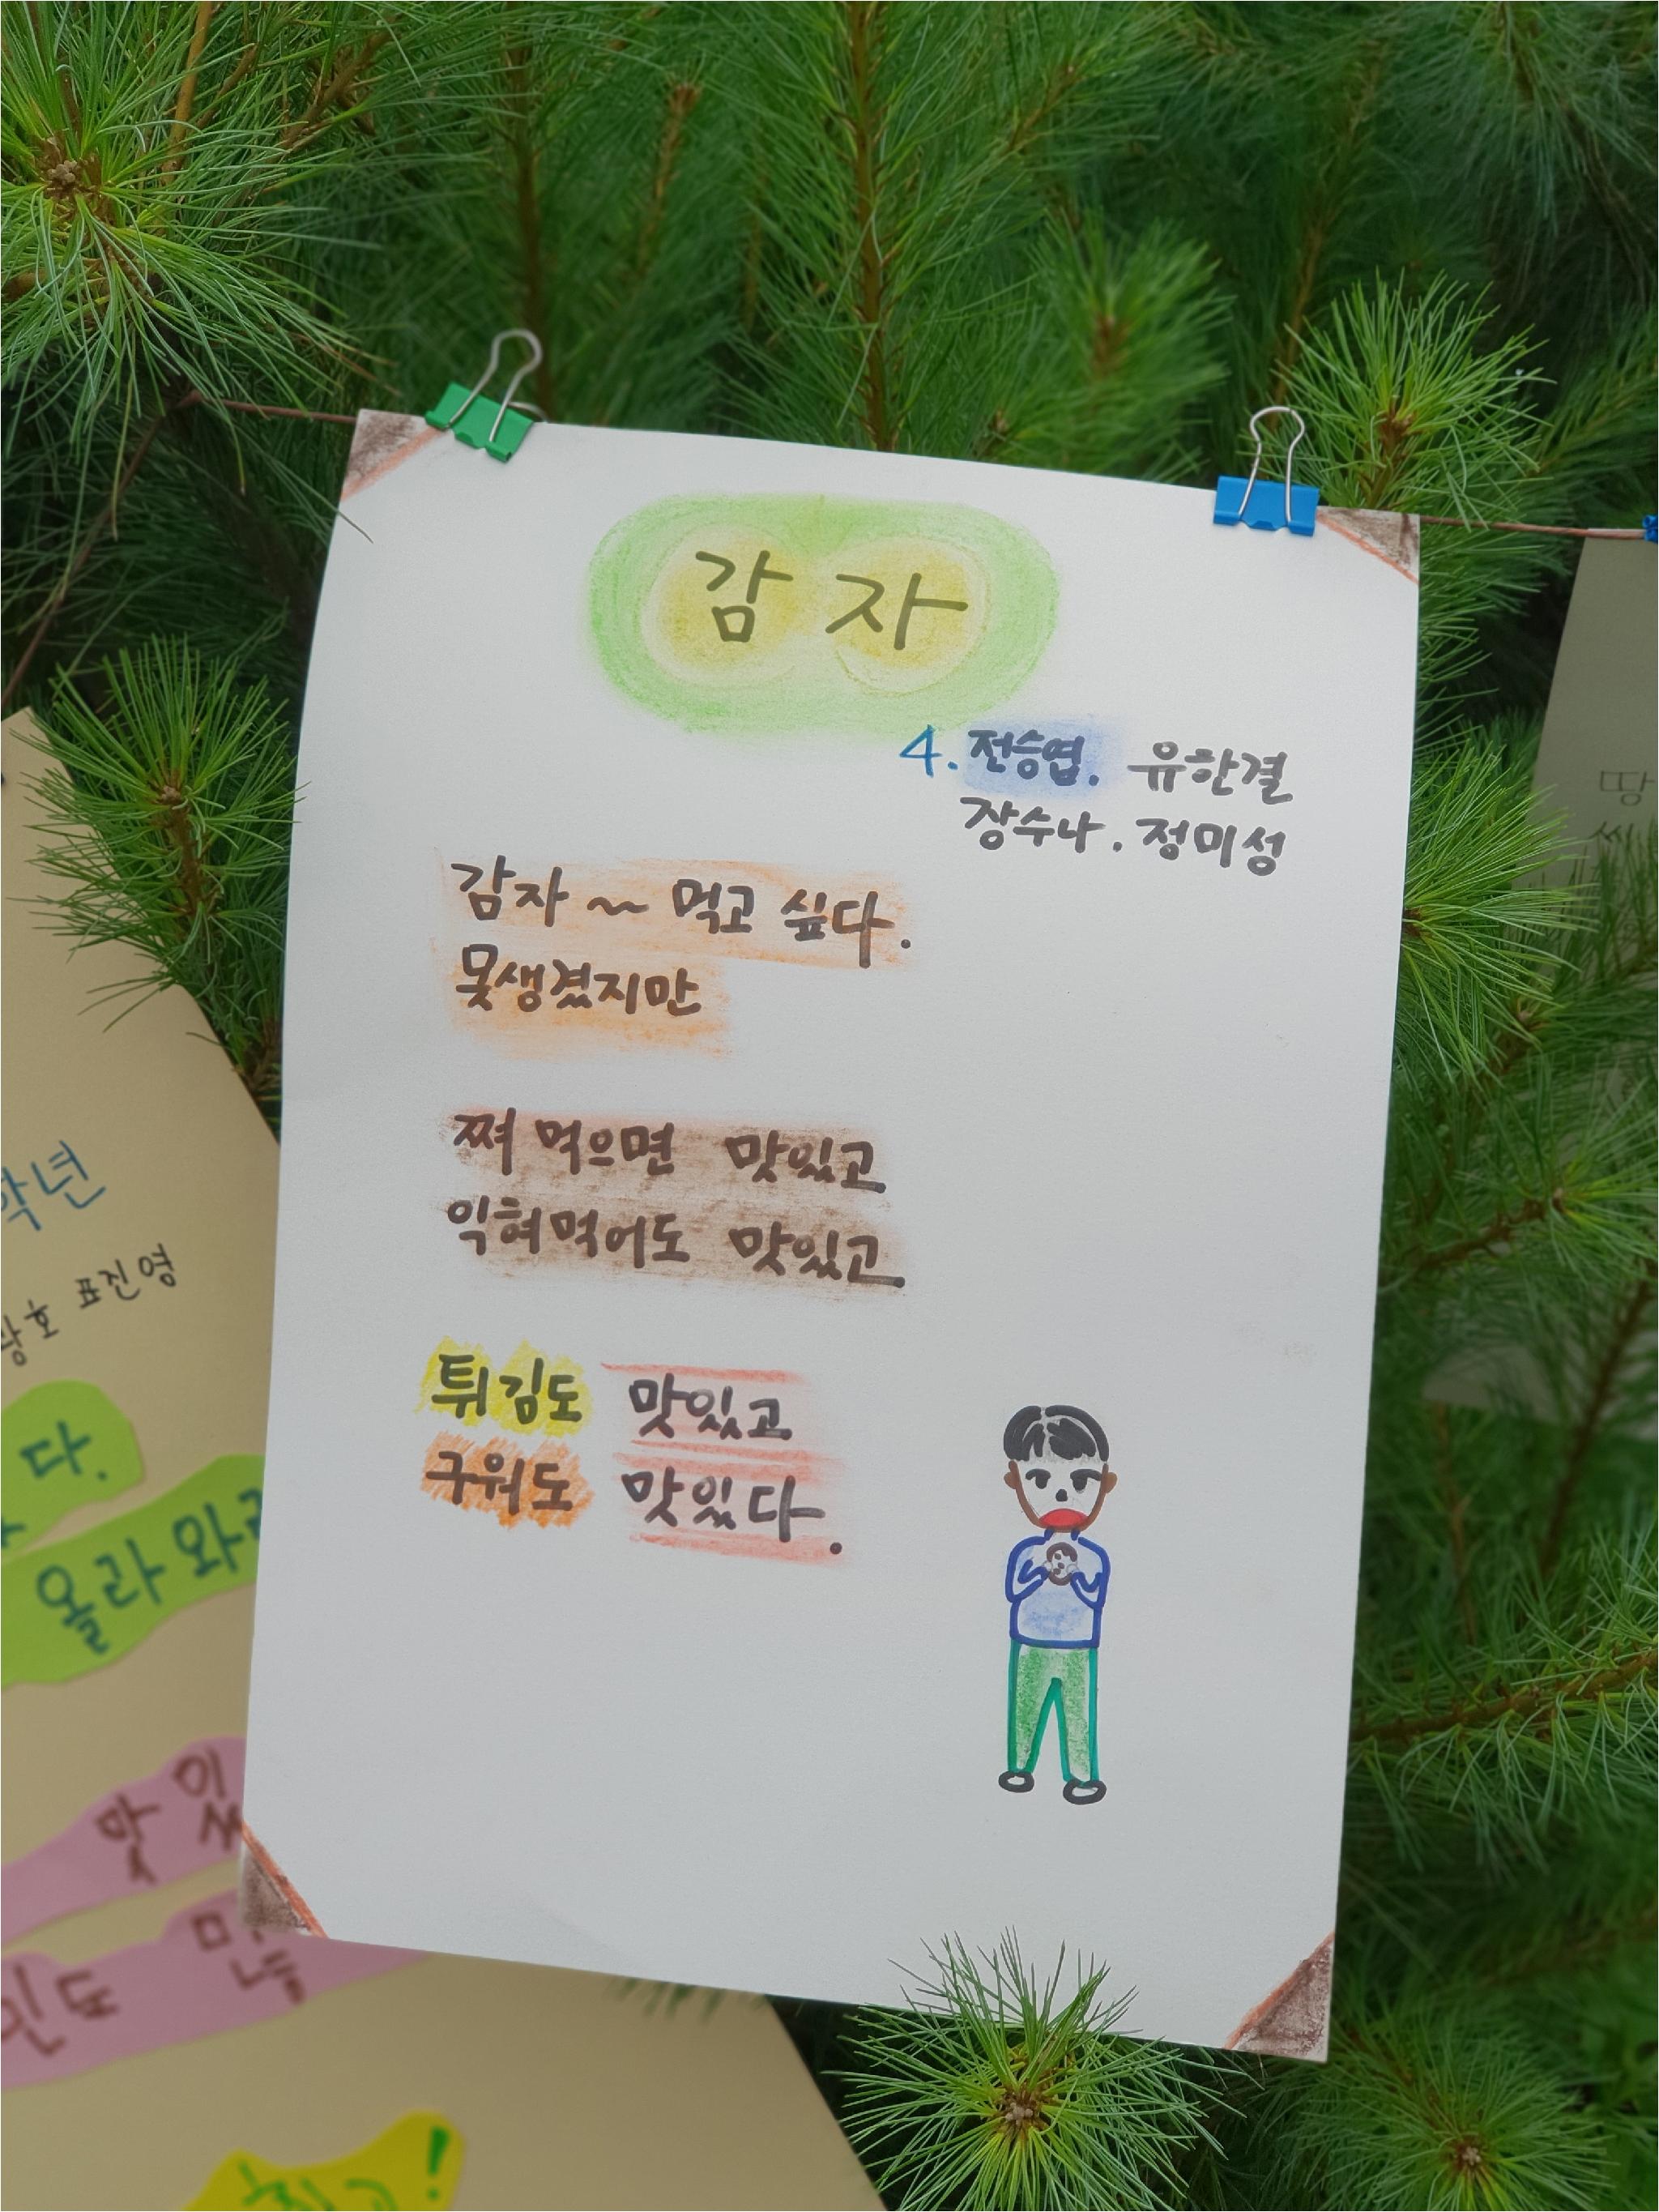 감자
4. 전승엽. 유한결
장수나. 정미성
감자 ~ 먹고 싶다.
못생겼지만
쪄 먹으면 맛있고
익혀먹어도 맛있고
튀김도 맛있고
구워도 맛있다.
학년
광호 표진영
다.
올라와라
맛있
민도
땅